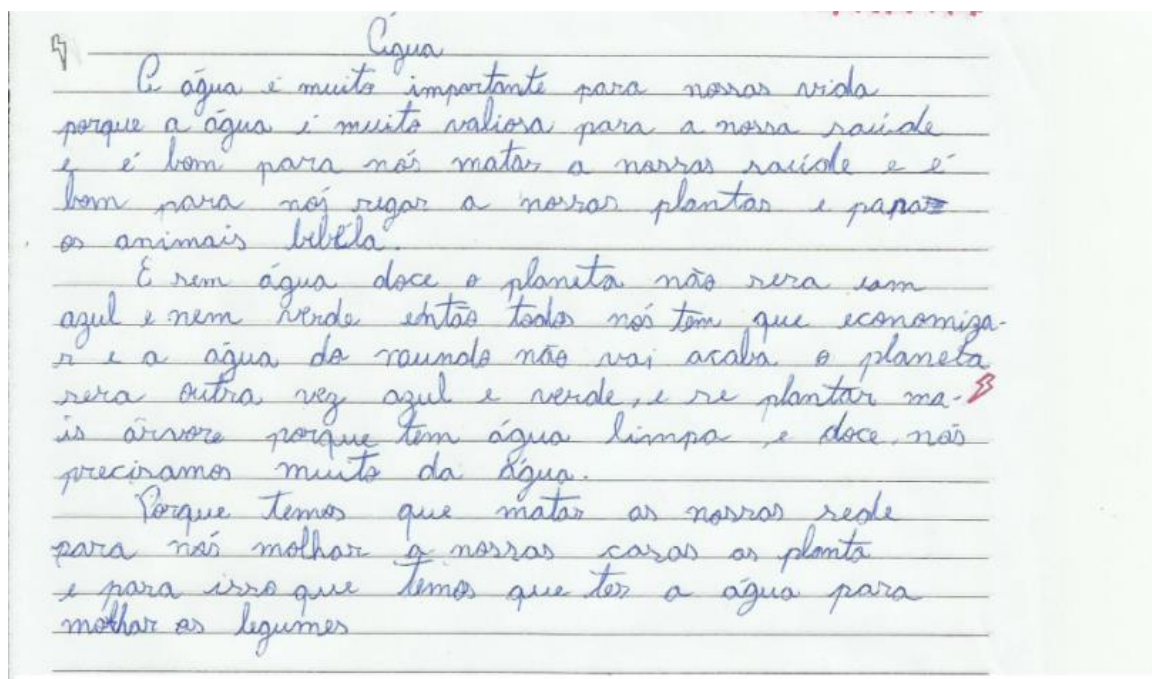 Água
A água é muito importante para nossas vida
porque a água é muito valiosa para a nossa saúde
e é bom para nós matar a nossas saúde e é
bom para nós regar a nossas plantas e para
os animais bebêla.
E sem água doce o planeta não sera
azul e nem verde então todos nós tem que economiza-
r e a água do mundo não vai acaba o planeta
sera outra vez azul e verde, e se plantar ma-
is árvore porque tem água limpa e doce, nós
precisamos muito da água.
Porque temos que matar as nossas sede
para nós molhar a nossas casas as planta
e para isso que temos que ter a água para
molhar os legumes